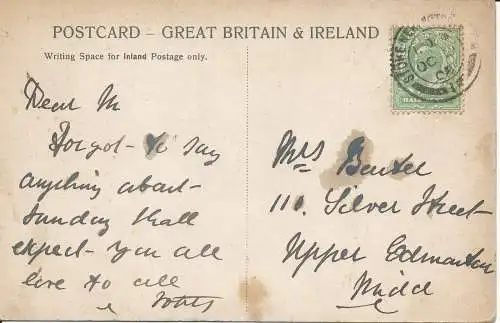 POSTCARD – GREAT BRITAIN & IRELAND
Writing Space for Inland Postage only.
Dear M
Forgot to say
anything about
Sunday shall
expect you all
love to all
Mrs
111 Silver Street
Upper Edmonton
Midd
STOKE
OC
HALF